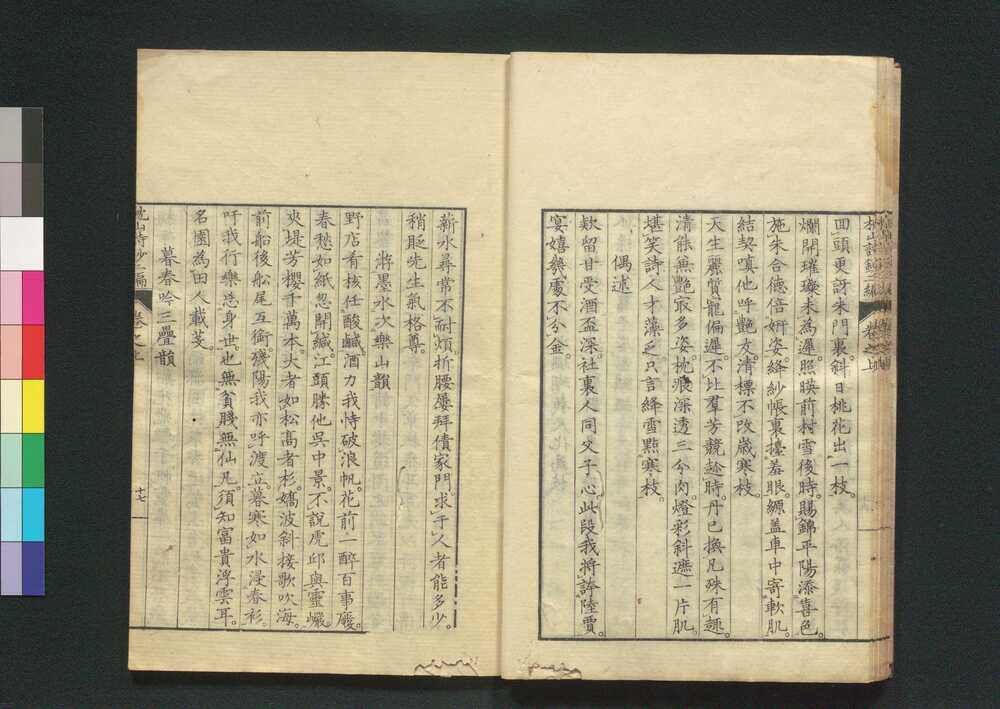 回頭更訝朱門裏。斜日桃花出一枝。
爛開璀璨未為遲。照暎前村雪後時。賜錦平陽添喜色。
施朱合德倍妍姿。絳紗帳裏擡羞眼。縹盖車中寄軟肌。
結契嗔他呼艷友。清標不改歳寒枝
天生麗質寵偏遲。不比羣芳競趁時。丹已換凡殊有趣。
清能無艶最多姿。枕痕深透三分肉。燈彩斜遮一片肌。
堪笑詩人才藻乏。只言絳雪點寒枝。
偶述
欵留甘受酒盃深。社裏人同父子心。此段我將誇陸賈。
宴嬉幾處不分金。
薪水尋常不耐煩。折腰屡拜債家門。求于人者能多少。
稍貶先生氣格尊。
將墨水次樂山韻
野店看核任酸鹹。酒力我恃破浪帆。花前一醉百事廢。
春愁如紙忽開緘。江頭勝他呉中景。不説虎邱與靈巗。
夾堤芳櫻千萬本。大者如松高者杉。嬌波斜接歌吹海。
前船後船尾互銜。殘陽我亦呼渡立。暮寒如水浸春衫。
吁我行樂忘身世。也無貧賤無仙凡。須知富貴浮雲耳。
名園為田人載芟。
暮春吟三疊韻
枕山詩鈔二編
卷之上
十七